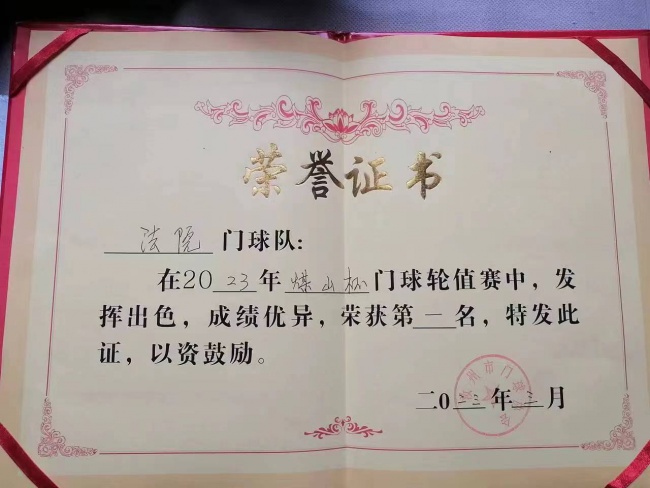 荣誉证书
法院门球队：
在2023年煤山杯门球轮值赛中，发
挥出色，成绩优异，荣获第一名，特发此
证，以资鼓励。
二0二三年三月